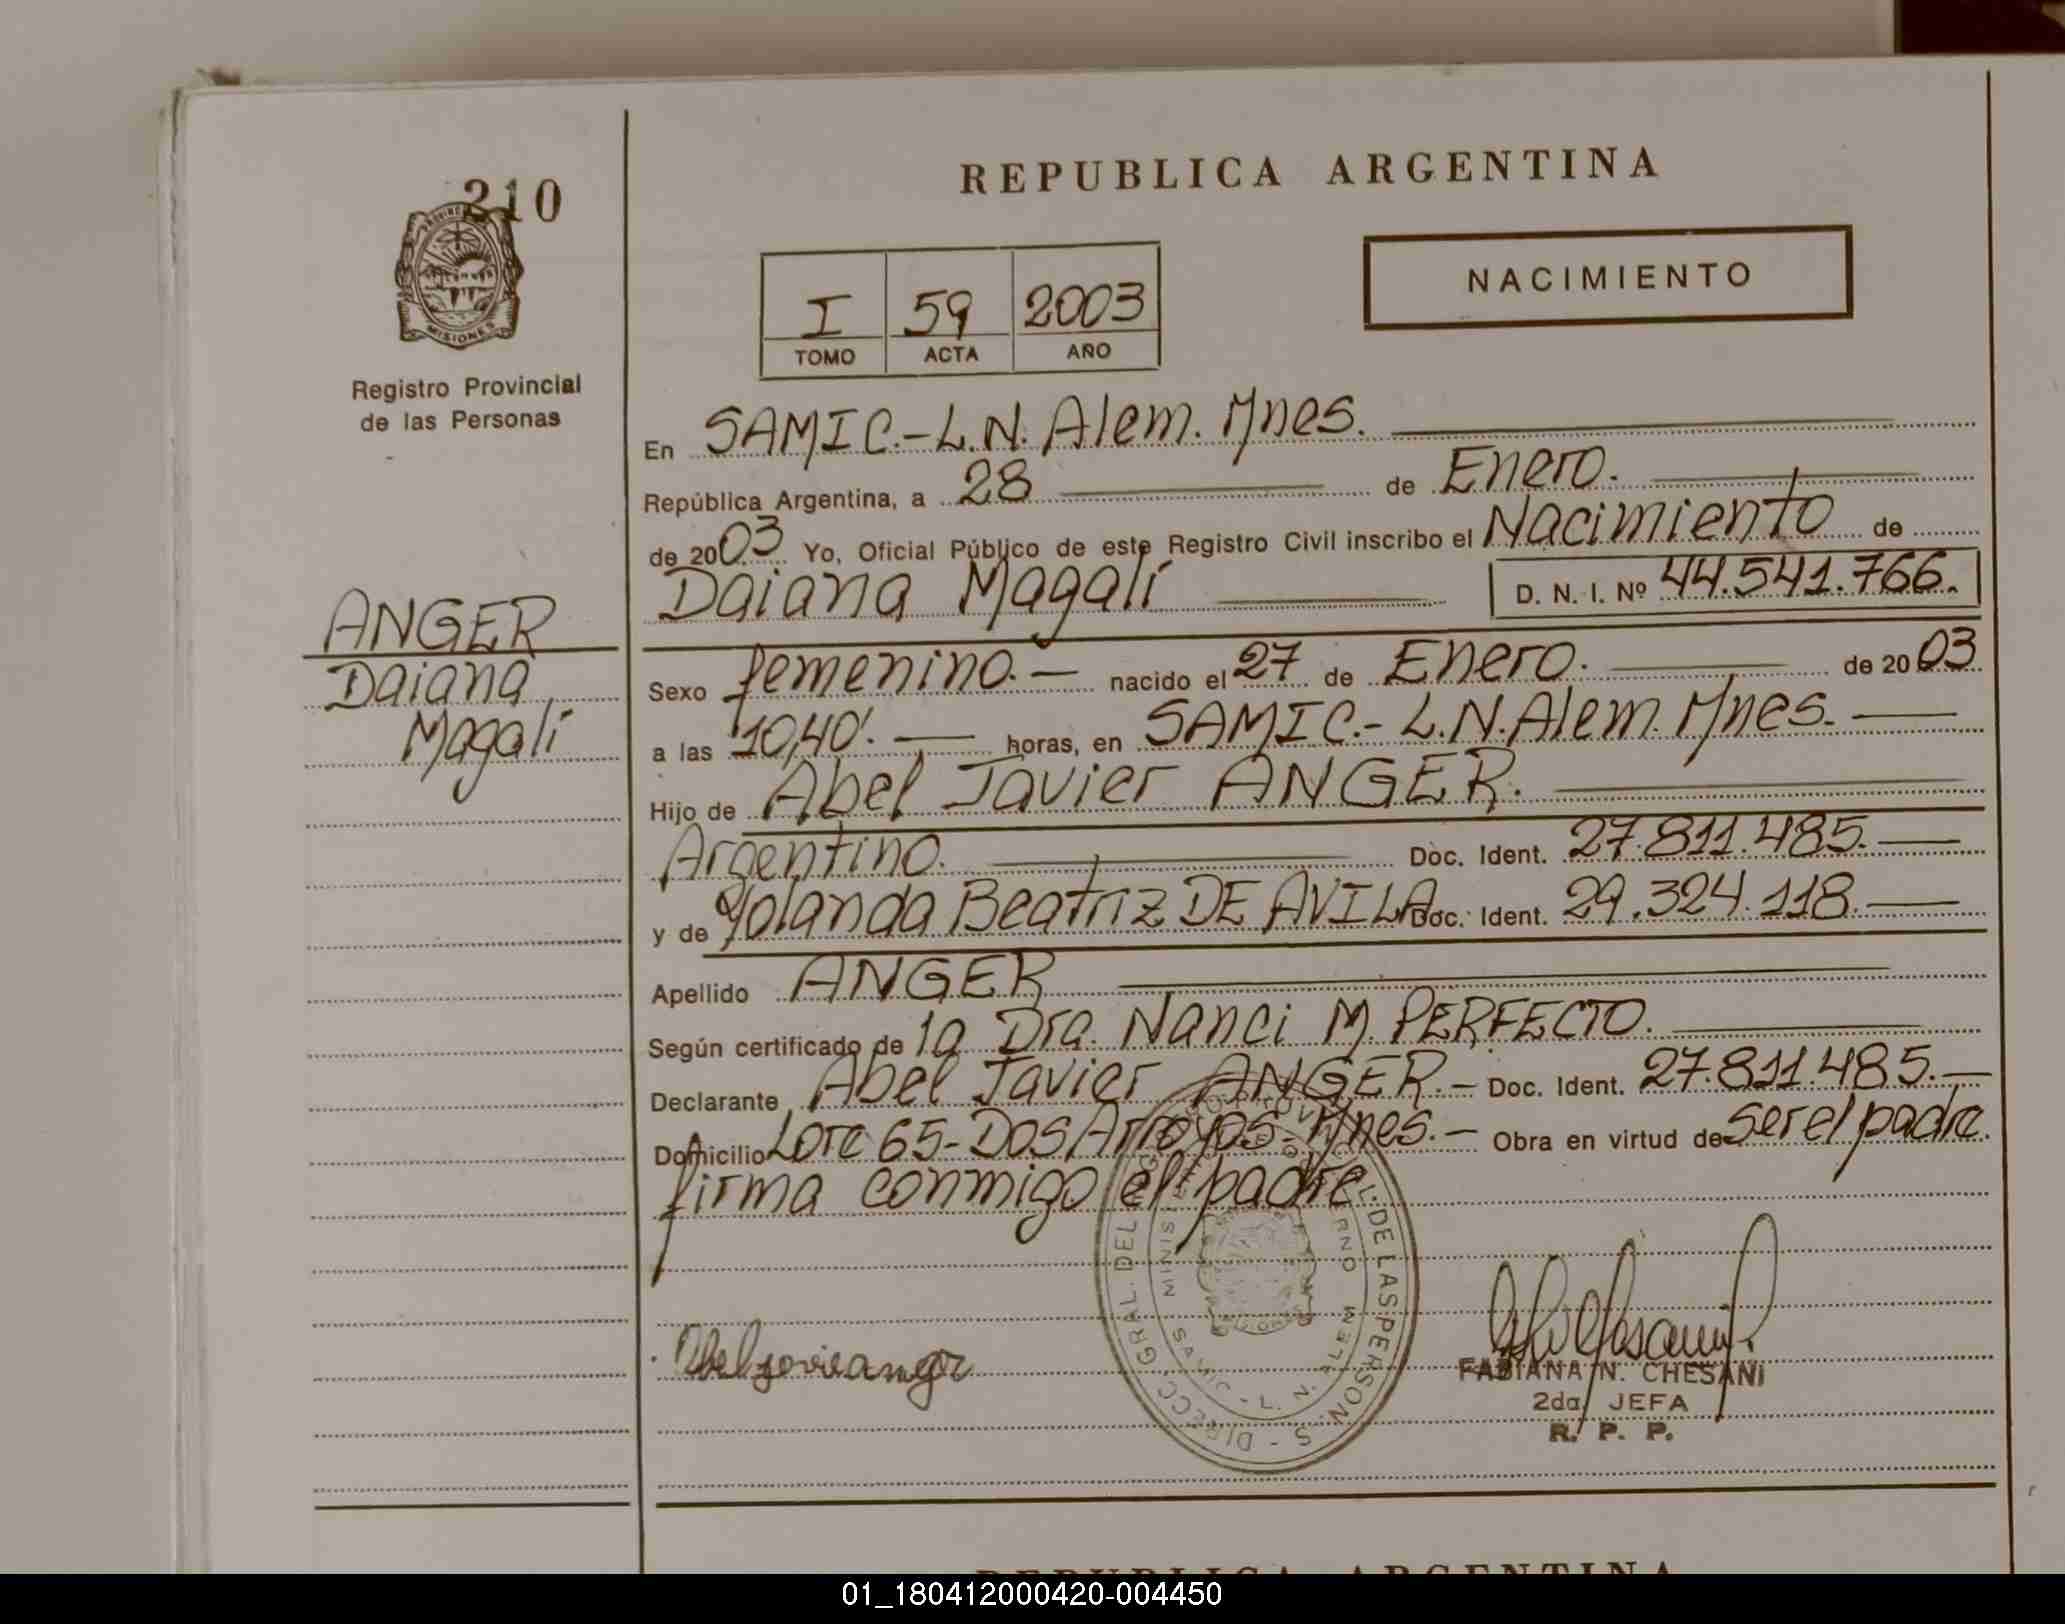 210
PROVINCIA
MISIONES
Registro Provincial
de las Personas
REPUBLICA ARGENTINA
NACIMIENTO
I 59 2003
TOMO ACTA AÑO
En SAMIC.-L.N. Alem. Mnes.
República Argentina, a 28 de Enero.
de 2003 Yo, Oficial Público de este Registro Civil inscribo el Nacimiento de
Daiana Magalí D. N. I. Nº 44.541.766.
ANGER
Daiana
Magalí
Sexo femenino.- nacido el 27 de Enero. de 2003
a las 10,40'. horas, en SAMIC.- L.N. Alem. Mnes.
Hijo de Abel Javier ANGER.
Argentino. Doc. Ident. 27.811.485.
y de Yolanda Beatriz DE AVILA Doc. Ident. 29.324.118.
Apellido ANGER
Según certificado de la Dra. Nanci M. PERFECTO.
Declarante Abel Javier ANGER.- Doc. Ident. 27.811.485.
Domicilio Lote 65-Dos Arroyos-Mnes.- Obra en virtud de ser el padre.
firma conmigo el padre.
DIRECC. GRAL. DEL DE LAS PERSON.S
SAMIC - L. N. ALEM
FABIANA N. CHESANI
2da. JEFA
R. P. P.
REPUBLICA ARGENTINA
01_180412000420-004450